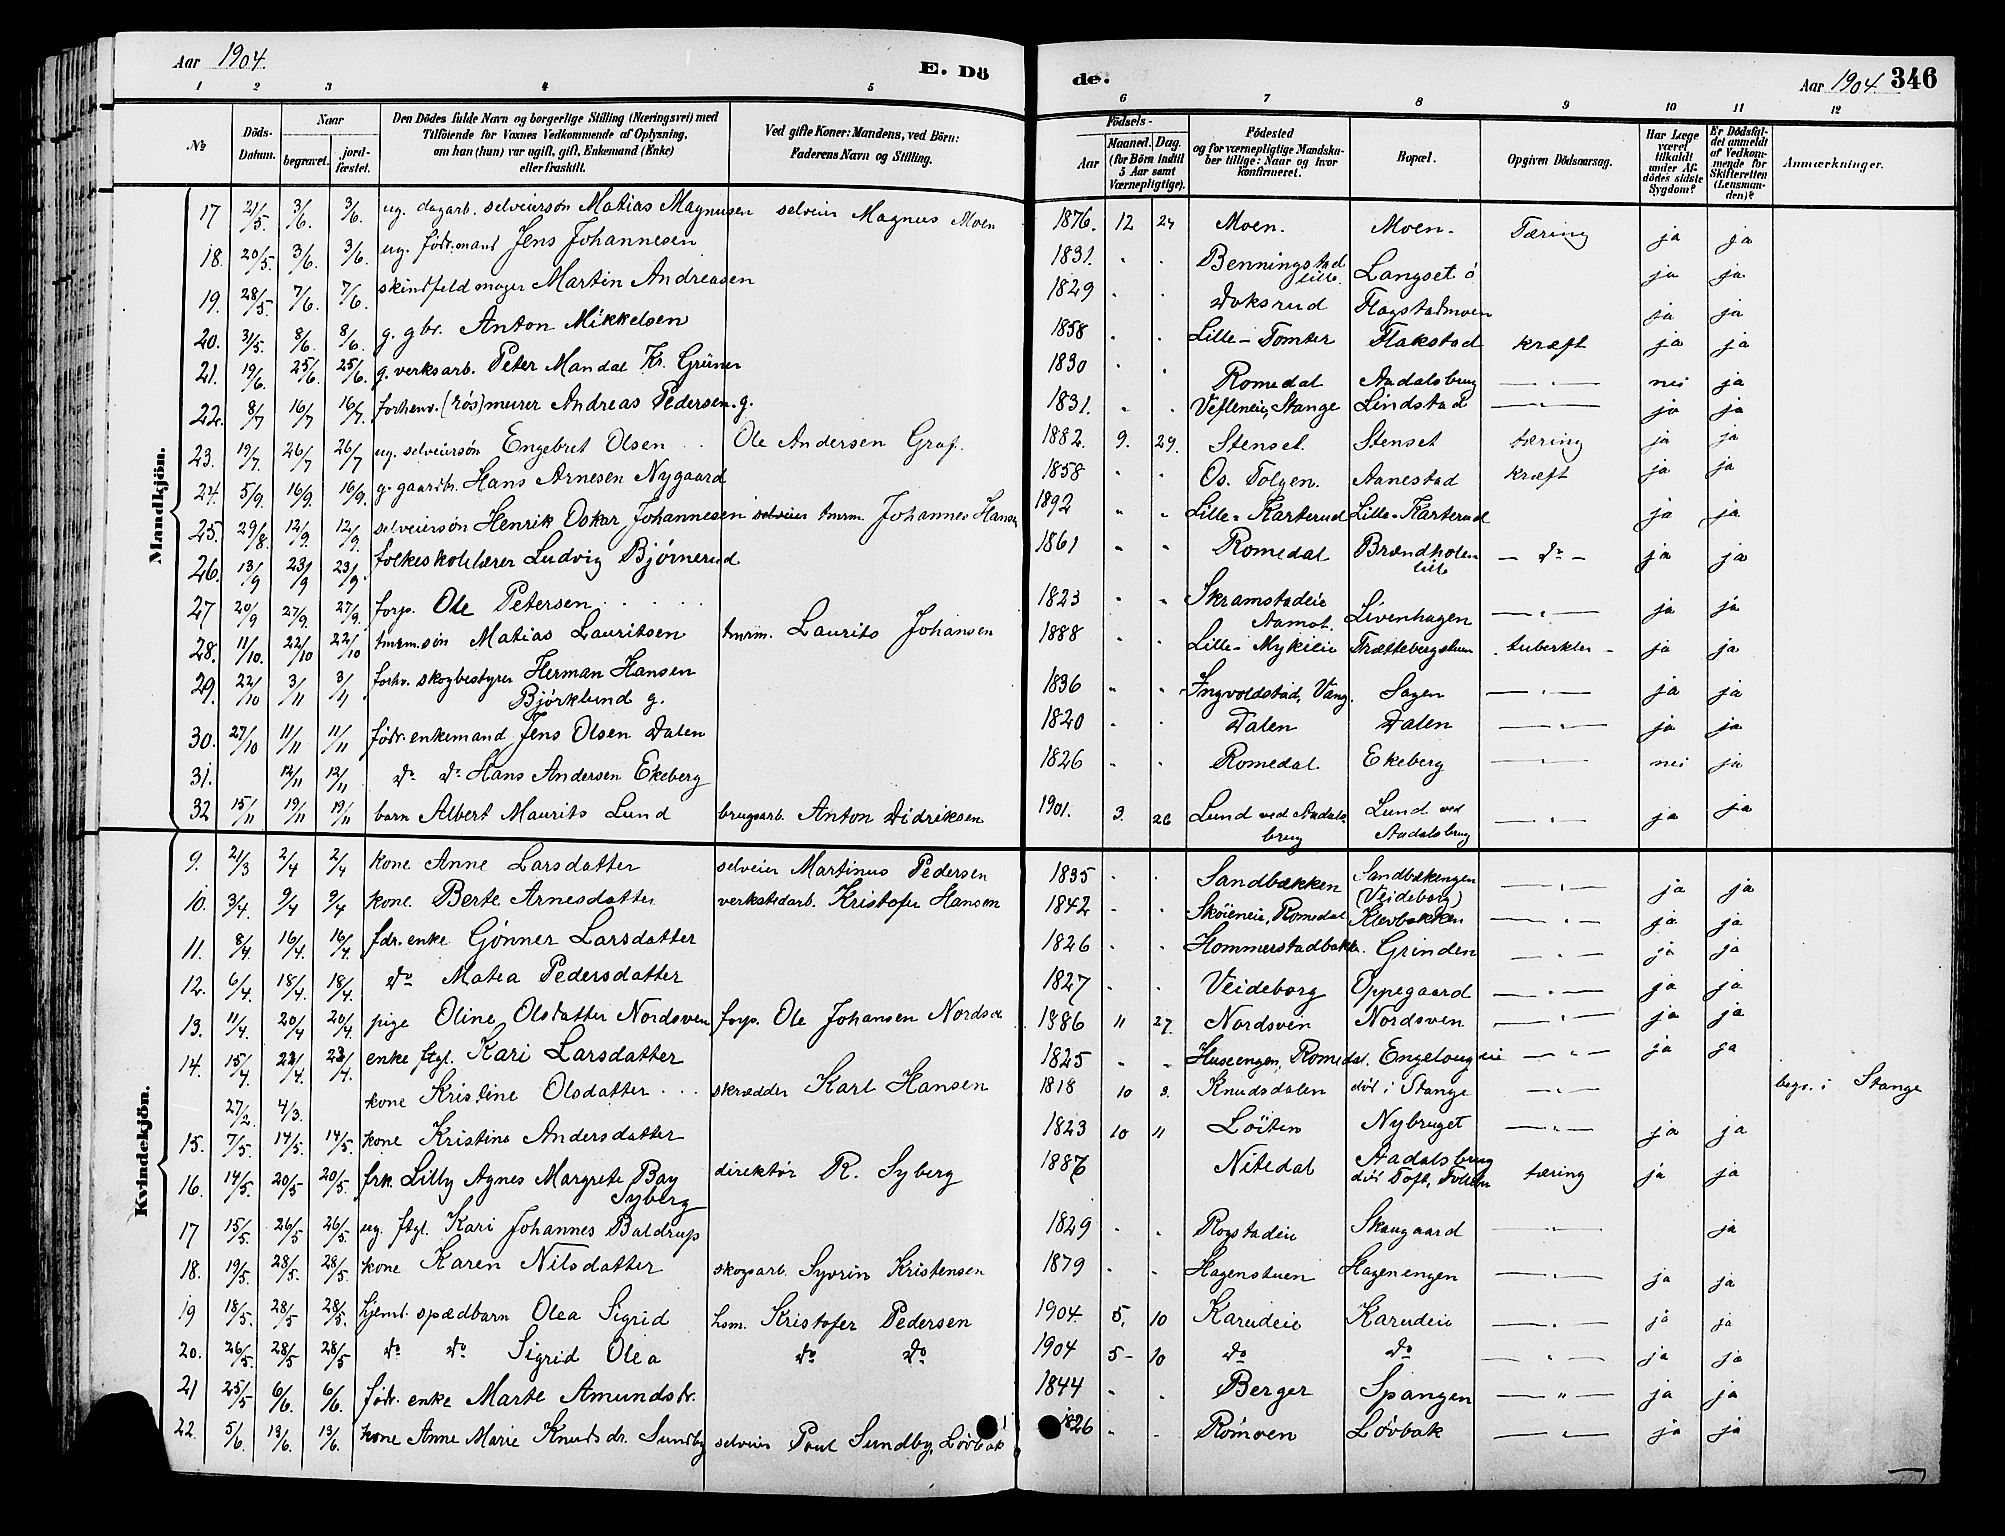 Aar 1904.
E. Dö
de.
Aar 1904 346
1 2 3 4 5 6 7 8 9 10 11 12
No
Döds-Datum.
Naar
begravet.
jord-fæstet.
Den Dödes fulde Navn og borgerlige Stilling (Næringsvei) med
Tilföiende for Voxnes Vedkommende af Oplysning,
om han (hun) var ugift, gift, Enkemand (Enke)
eller fraskilt.
Ved gifte Koner: Mandens, ved Börn:
Faderens Navn og Stilling.
Födsels-
Aar
Maaned. Dag.
(for Börn indtil 5 Aar samt Værnepligtige).
Födested
og for værnepligtige Mandskaber tillige: Naar og hvor konfirmeret.
Bopæl.
Opgiven Dödsaarsag.
Har Læge været tilkaldt under Afdödes sidste Sygdom?
Er Dödsfaldet anmeldt af Vedkommende for Skifteretten (Lensmanden)?
Anmærkninger.
Mandkjön.
17 21/5 3/6. 3/6. ug. dagarb. selveiersøn Matias Magnusen selveier Magnus Moen 1876. 12 24 Moen. Moen. Tæring ja ja
18. 20/5. 3/6. 3/6. ug. födr.mand Jens Johannesen 1831. " " Benningstad lille. Langset ö ja ja
19. 28/5. 7/6. 7/6. skindfeldmager Martin Andreasen 1829 " " Doksrud Flagstadmoen ja ja
20. 31/5. 8/6. 8/6. g. gbr. Anton Mikkelsen 1858 " " Lille-Tomter Flakstad kræft ja ja
21. 19/6. 25/6. 25/6. g. verksarb. Peter Mandal Kr. Grüner 1830 " " Romedal Aadalsbrug — " — nei ja
22. 8/7 16/7 16/7. forhenv. (rös) murer Andreas Pedersen. g. 1831. " " Vesteneie, Stange Lindstad — " — ja ja
23. 19/7. 26/7 26/7 ug. selveiersön Engebret Olsen Ole Andersen Graf. 1882. 9. 29. Stenset. Stenset tæring ja ja
24. 5/9. 16/9. 16/9. g. gaardbr. Hans Arnesen Nygaard 1858 " " Os. Tolgen. Aanestad kræft ja ja
25. 29/8. 12/9. 12/9. selveiersön Henrik Oskar Johannesen selveier tmrm. Johannes Hansen 1892 " " Lille-Karterud Lille-Karterud ja ja
26. 13/9 23/9 23/9. folkeskolelærer Ludvig Bjørnerud 1861 " " Romedal Brændholen lille — do — ja ja
27 20/9 27/9. 27/9. forp. Ole Petersen 1823 " " Skramstadeie Aamot. Livenhagen — " — ja ja
28. 11/10. 22/10 22/10 tmrm.sön Matias Lauritsen tmrm. Laurits Johansen 1888 " " Lille-Mykieie Trættebergstuen tuberkler ja ja
29. 22/10 3/11 3/11 forhv. skogbestyrer Herman Hansen Björklund g. 1836 " " Ingvoldstad, Vang. Sagen — " — ja ja
30. 27/10 11/11 11/11 födr. enkemand Jens Olsen Dalen 1820 " " Dalen Dalen — " — ja ja
31. 12/11 12/11 do do Hans Andersen Ekeberg 1826 Romedal Ekeberg — " — nei ja
32 15/11 19/11 19/11 barn Albert Maurits Lund brugsarb. Anton Didriksen 1901. 3. 26 Lund ved Aadalsbrug Lund ved Aadalsbrug — " — ja ja
Kvindekjön.
9. 21/3 2/4 2/4 kone Anne Larsdatter selveier Martinus Pedersen 1835 " " Sandbækken Sandbækengen (Veideborg) — " — ja ja
10. 3/4. 9/4 9/4 kone Berte Arnesdatter verkstedarb. Kristofer Hansen 1842 " " Sköieneie, Romedal Klevbakken — " — ja ja
11. 8/4. 16/4. 16/4. fdr. enke Gönner Larsdatter 1826 " " Hommerstadbakk. Grinden — " — ja ja
12. 6/4. 18/4. 18/4. do Matea Pedersdatter 1827 " " Veideborg Oppegaard — " — ja ja
13. 11/4. 20/4 20/4 pige Oline Olsdatter Nordsven forp. Ole Johansen Nordsve 1886 11 27. Nordsven Nordsven — " — ja ja
14. 15/4. 23/4. 23/4. enke ftgl. Kari Larsdatter 1825 " " Huseengen, Romedal. Engelougeie — " — ja ja
27/2. 4/3. kone Kristine Olsdatter skrædder Karl Hansen 1818 10 8. Knudsdalen död i Stange — " — begr. i Stange
15. 7/5. 14/5. 14/5. kone Kristine Andersdatter 1823 10 11 Löiten Nybruget — " — ja ja
16. 14/5. 20/5 20/5. frk. Lilly Agnes Margrete Bay Syberg direktör R. Syberg 1887 Nitedal Aadalsbrug död Toft, tæring ja ja
17 15/5. 26/5 26/5. ug. ftgl. Kari Johannes Baldrup 1829 " " Rogstadeie Skaugaard — " — ja
18. 19/5. 28/5. 28/5. kone Karen Nilsdatter skogsarb. Syvrin Kristensen 1879 " " Hagenstuen Hagenengen — " — ja ja
19 18/5. 28/5. 28/5. hjemd. spædbarn Olea Sigrid hsm. Kristofer Pedersen 1904 5. 10 Karudeie Karudeie — " — ja ja
20. 26/5. 28/5 28/5 do do Sigrid Olea do do 1904 5- 10 do do — " — ja ja
21 25/5 6/6. 6/6. födr. enke Marte Amundsdr. 1844 " " Berger Spangen — " — ja ja
22. 5/6. 13/6. 13/6. kone Anne Marie Knudsdr. Sundby selveier Poul Sundby, Lövbak 1826 " " Römoen Lövbak — " — ja ja